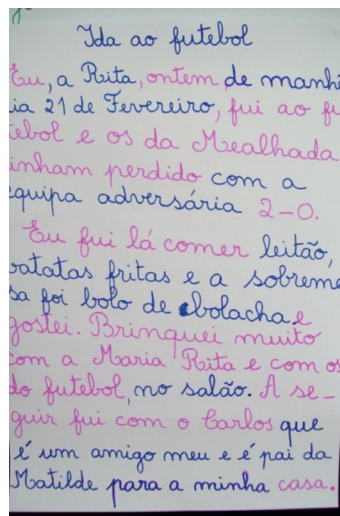 Ida ao futebol
Eu, a Rita, ontem de manhã
ia 21 de Fevereiro, fui ao fu
tebol e os da Mealhada
inham perdido com a
equipa adversária 2-0.
Eu fui lá comer leitão,
batatas fritas e a sobreme
sa foi bolo de bolacha e
gostei. Brinquei muito
com a Maria Rita e com os
do futebol, no salão. A se-
guir fui com o Carlos que
é um amigo meu e é pai da
Matilde para a minha casa.